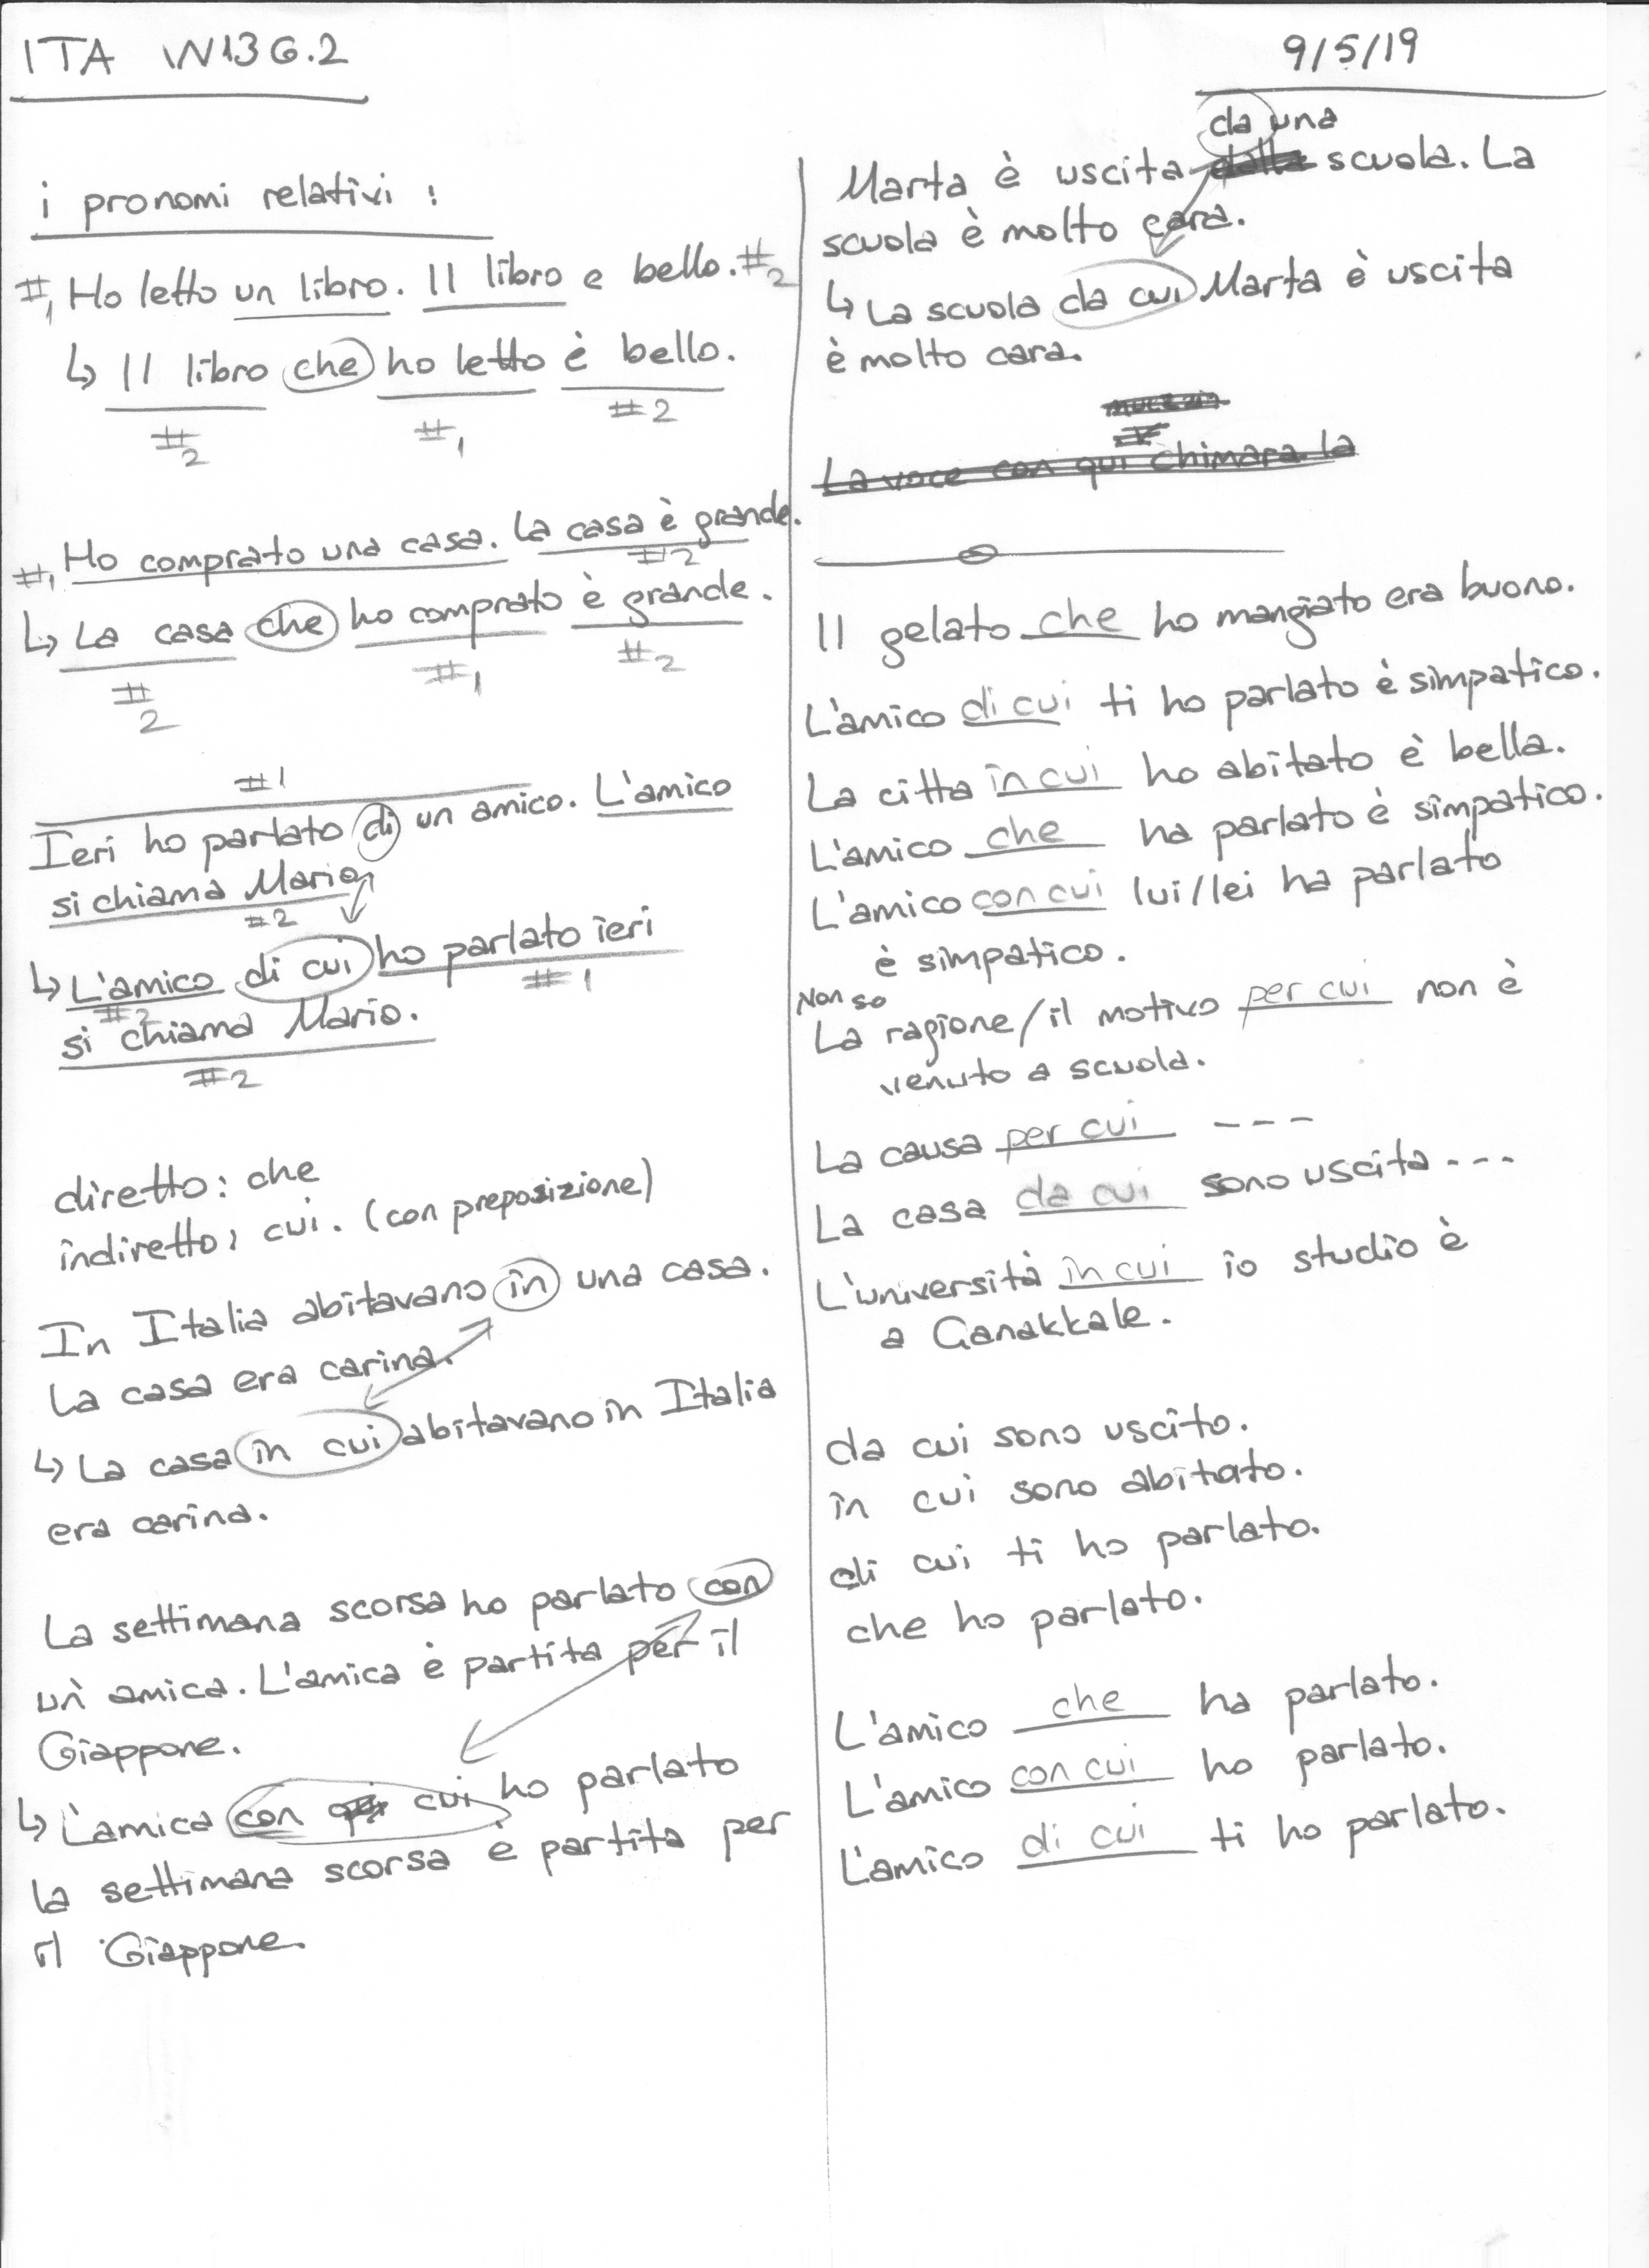 ITA W13G.2
9/5/19
i pronomi relativi :
#1 Ho letto un libro. Il libro e bello. #2
↳ Il libro che ho letto è bello.
#2 #1 #2
#1 Ho comprato una casa. La casa è grande.
#2
↳ La casa che ho comprato è grande.
#2 #1 #2
#1
Ieri ho parlato di un amico. L'amico
si chiama Mario
#2
↳ L'amico di cui ho parlato ieri
#2 #1
si chiama Mario.
#2
diretto: che
indiretto: cui. (con preposizione)
In Italia abitavano in una casa.
La casa era carina.
↳ La casa in cui abitavano in Italia
era carina.
La settimana scorsa ho parlato con
un' amica. L'amica è partita per il
Giappone.
↳ L'amica con cui ho parlato
la settimana scorsa è partita per
il Giappone.
da una
Marta è uscita dalla scuola. La
scuola è molto cara.
↳ La scuola da cui Marta è uscita
è molto cara.
La voce con qui chimara la
Il gelato che ho mangiato era buono.
L'amico di cui ti ho parlato è simpatico.
La citta in cui ho abitato è bella.
L'amico che ha parlato è simpatico.
L'amico con cui lui/lei ha parlato
è simpatico.
Non so
La ragione/il motivo per cui non è
venuto a scuola.
La causa per cui ---
La casa da cui sono uscita ---
L'università in cui io studio è
a Çanakkale.
da cui sono uscito.
in cui sono abitato.
di cui ti ho parlato.
che ho parlato.
L'amico che ha parlato.
L'amico con cui ho parlato.
L'amico di cui ti ho parlato.